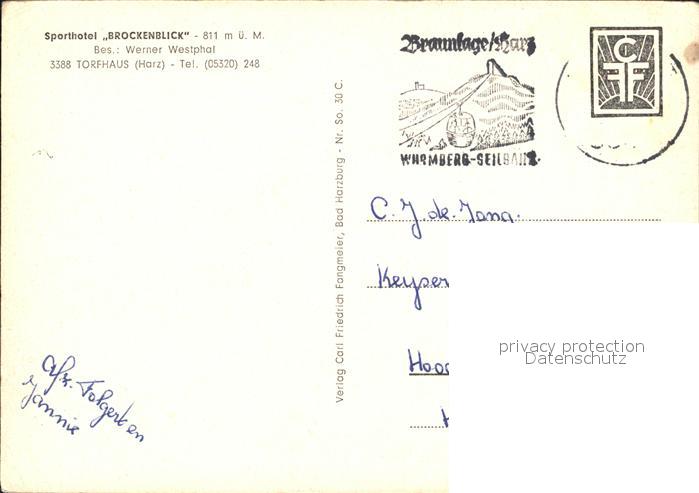 Sporthotel „BROCKENBLICK" - 811 m ü. M.
Bes.: Werner Westphal
3388 TORFHAUS (Harz) - Tel. (05320) 248
Braunlage/Harz
WURMBERG-SEILBAHN
CFF
Verlag Carl Friedrich Fangmeier, Bad Harzburg - Nr. So. 30 C.
C. J. de Jong.
Keyser
Hoo
privacy protection
Datenschutz
Afz. Folgert en
Jannie